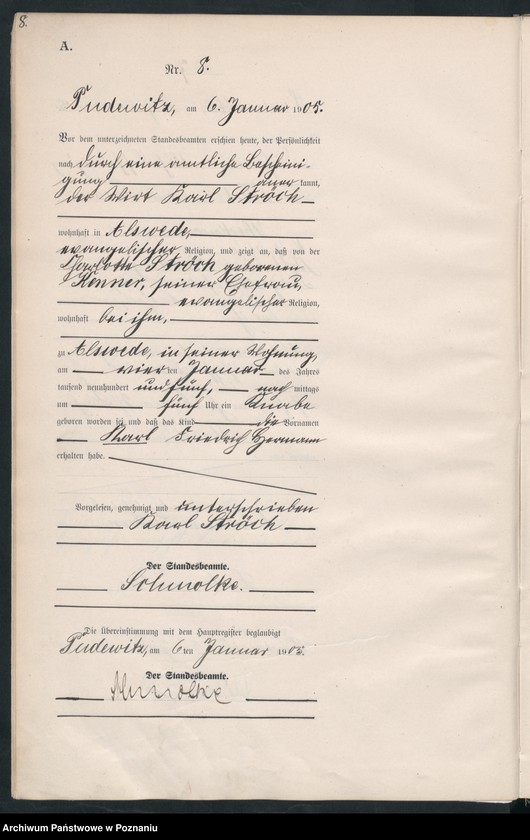 8.
A.
Nr. 8.
Pudewitz, am 6. Januar 1905.
Vor dem unterzeichneten Standesbeamten erschien heute, der Persönlichkeit
nach durch eine amtliche Bescheini-
gung aner kannt,
der Wirt Karl Ströch
wohnhaft in Alswede,
evangelischer Religion, und zeigt an, daß von der
Charlotte Ströch geborenen
Konner, seiner Ehefrau,
evangelischer Religion,
wohnhaft bei ihm,
zu Alswede, in seiner Wohnung,
am vier ten Januar des Jahres
tausend neunhundert und fünf, nach mittags
um fünf Uhr ein Knabe
geboren worden sei und daß das Kind die Vornamen
Karl Friedrich Hermann
erhalten habe.
Vorgelesen, genehmigt und unterschrieben
Karl Ströch
Der Standesbeamte.
Schmolke.
Die Übereinstimmung mit dem Hauptregister beglaubigt
Pudewitz, am 6ten Januar 1905.
Der Standesbeamte.
Schmolke
Archiwum Państwowe w Poznaniu